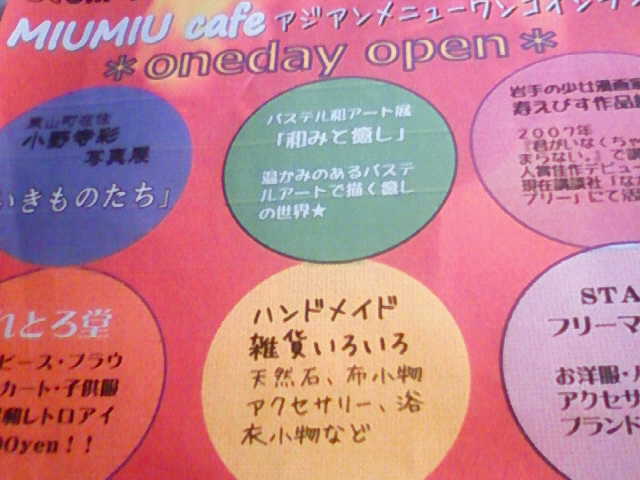 MIUMIU cafe アジアンメニューワンコイン
*oneday open*
東山町在住
小野寺彩
写真展
いきものたち」
パステル和アート展
「和みと癒し」
温かみのあるパステ
ルアートで描く癒し
の世界★
岩手の少女漫画家
寿えびす作品
2007年
『君がいなくちゃ
まらない。』で講
人賞佳作デビュー
現在講談社「な
ブリー」にて活
れとろ堂
ピース・ブラウ
カート・子供服
和柄レトロアイ
00yen!!
ハンドメイド
雑貨いろいろ
天然石、布小物
アクセサリー、浴
衣小物など
STA
フリーマ
お洋服・
アクセサ
ブランド